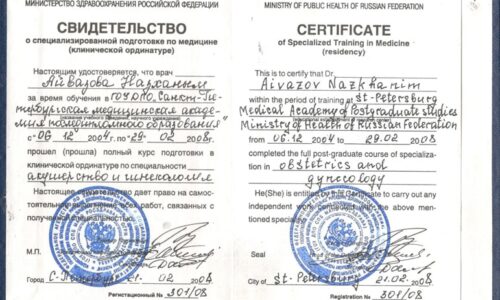 МИНИСТЕРСТВО ЗДРАВООХРАНЕНИЯ РОССИЙСКОЙ ФЕДЕРАЦИИ
СВИДЕТЕЛЬСТВО
о специализированной подготовке по медицине
(клинической ординатуре)
Настоящим удостоверяется, что врач
Айвазова Назханым
за время обучения в ГОУДПО Санкт-Пе-
тербургская медицинская акаде-
мия последипломного образования"
с 06. 12 2004 г. по 29. 02 2008 г.
прошел (прошла) полный курс подготовки в
клинической ординатуре по специальности
акушерство и гинекология
Настоящее свидетельство дает право на самос-
тоятельное выполнение всех работ, связанных с
полученной специальностью.
М.П.
Город С.-Петербург 21. 02 2008
Регистрационный № 301/08
MINISTRY OF PUBLIC HEALTH OF RUSSIAN FEDERATION
CERTIFICATE
of Specialized Training in Medicine
(residency)
This is to certify that Dr.
Aivazov Nazkhanim
within the period of training at St-Petersburg
Medical Academy of Postgraduate studies
Ministry of Health of Russian Federation
from 06. 12 2004 to 29.02 2008
completed the full post-graduate course of specializa-
tion in obstetrics and
gynecology
He(She) is entitled by this Certificate to carry out any
independent work connected with the above men-
tioned speciality.
Seal
City of St-Petersburg 21.02 2008
Registering № 301/08